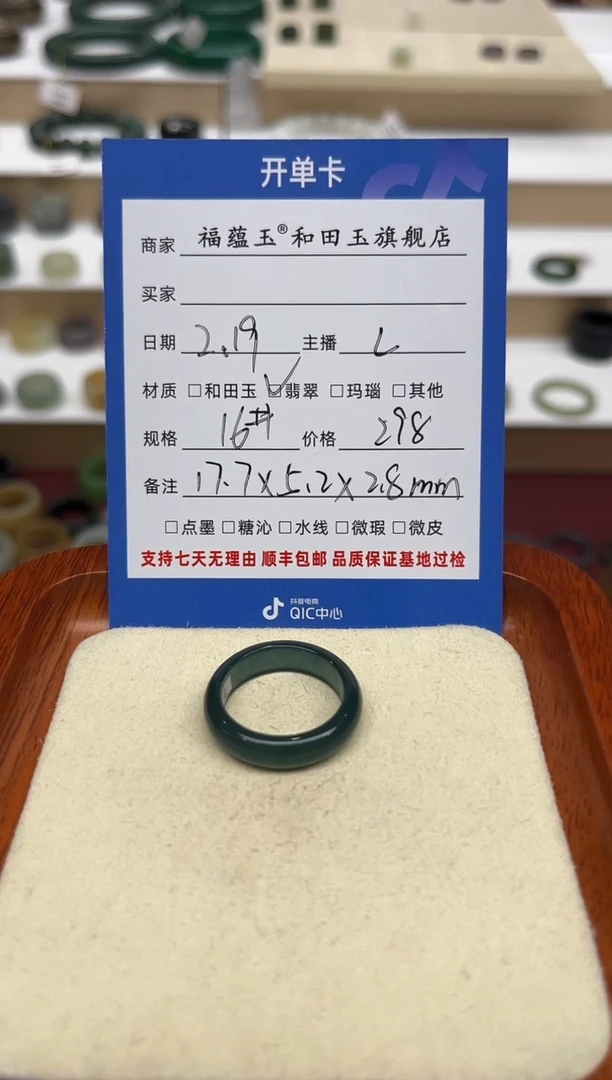 开单卡
商家 福蕴玉®和田玉旗舰店
买家
日期 2.19 主播 L
材质 □和田玉 ☑翡翠 □玛瑙 □其他
规格 16# 价格 298
备注 17.7×5.2×2.8mm
□点墨 □糖沁 □水线 □微瑕 □微皮
支持七天无理由 顺丰包邮 品质保证基地过检
抖音电商
QIC中心